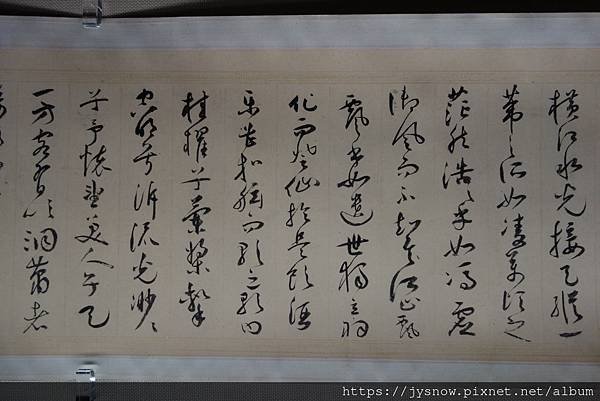 橫江水光接天縱一
葦之所如凌萬頃之
茫然浩〻乎如馮虛
御風而不知其所止飄
飄乎如遺世獨立羽
化而登仙於是飲酒
樂甚扣舷而歌之歌曰
桂櫂兮蘭槳擊
空明兮泝流光渺〻
兮予懷望美人兮天
一方客有吹洞簫者
https://jysnow.pixnet.net/album